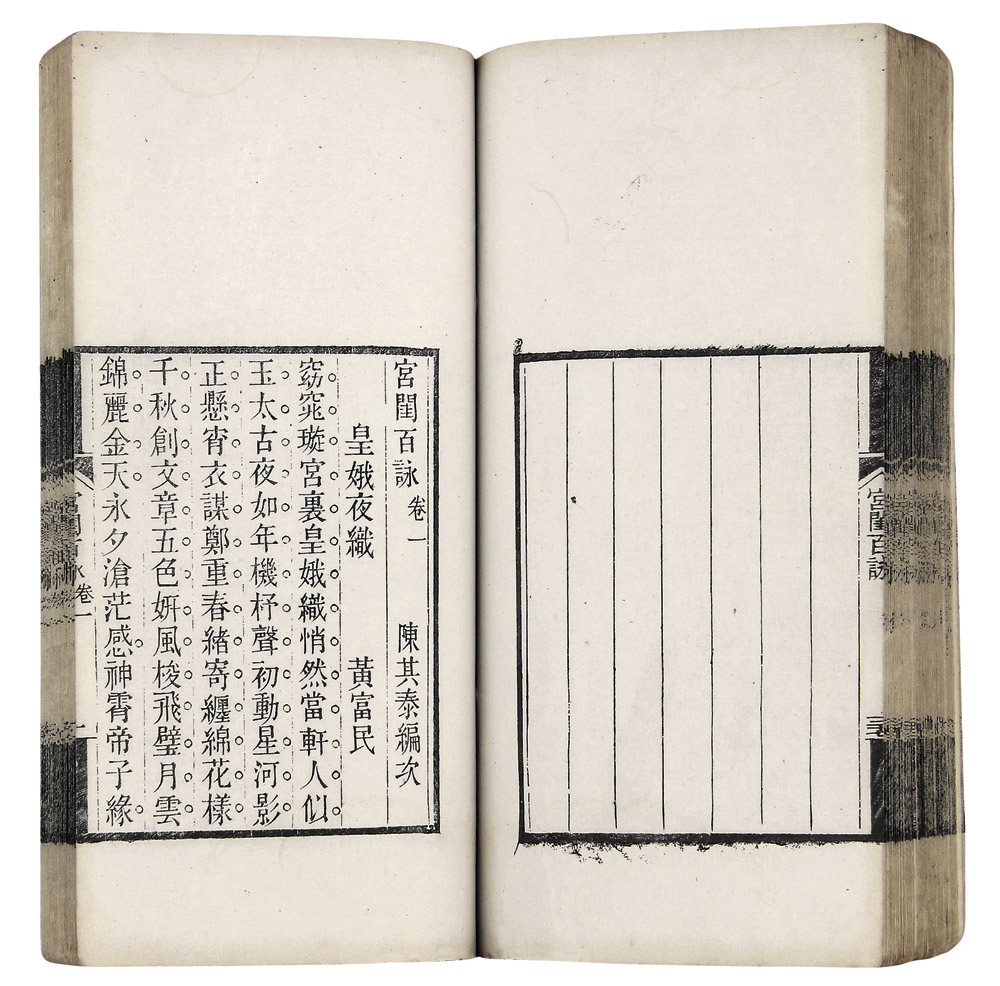 宮閨百詠
宮閨百詠 卷一 陳其泰編次
皇娥夜織 黃富民
窈窕璇宮裏皇娥織悄然當軒人似
玉太古夜如年機杼聲初動星河影
正懸宵衣謀鄭重春緒寄纏綿花樣
千秋創文章五色妍風梭飛璧月雲
錦麗金天永夕滄茫感神霄帝子緣
宮閨百詠卷一
一